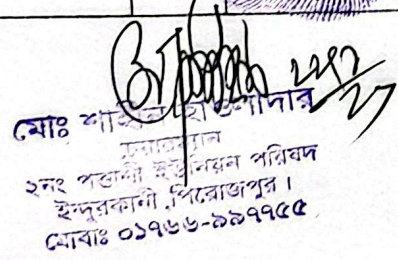 মোঃ শাহীন হাওলাদার
চেয়ারম্যান
২নং পত্তাশী ইউনিয়ন পরিষদ
ইন্দুরকানী, পিরোজপুর।
মোবাঃ ০১৭৬৬-৯৯৭৭৫৫